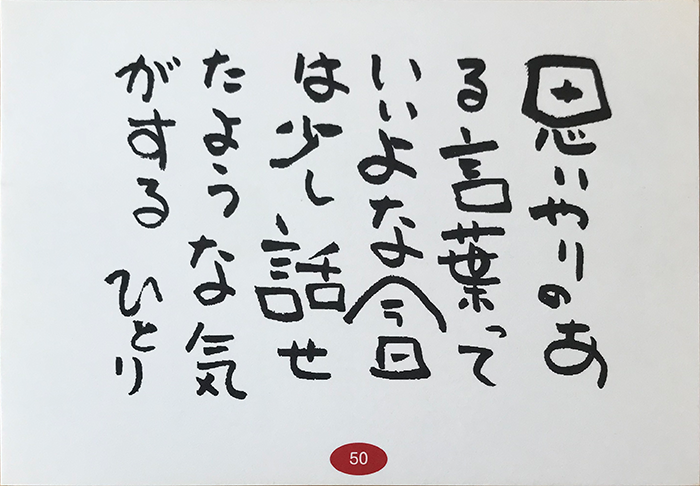 思いやりのあ
る言葉って
いいよな今日
は少し話せ
たような気
がする ひとり
50